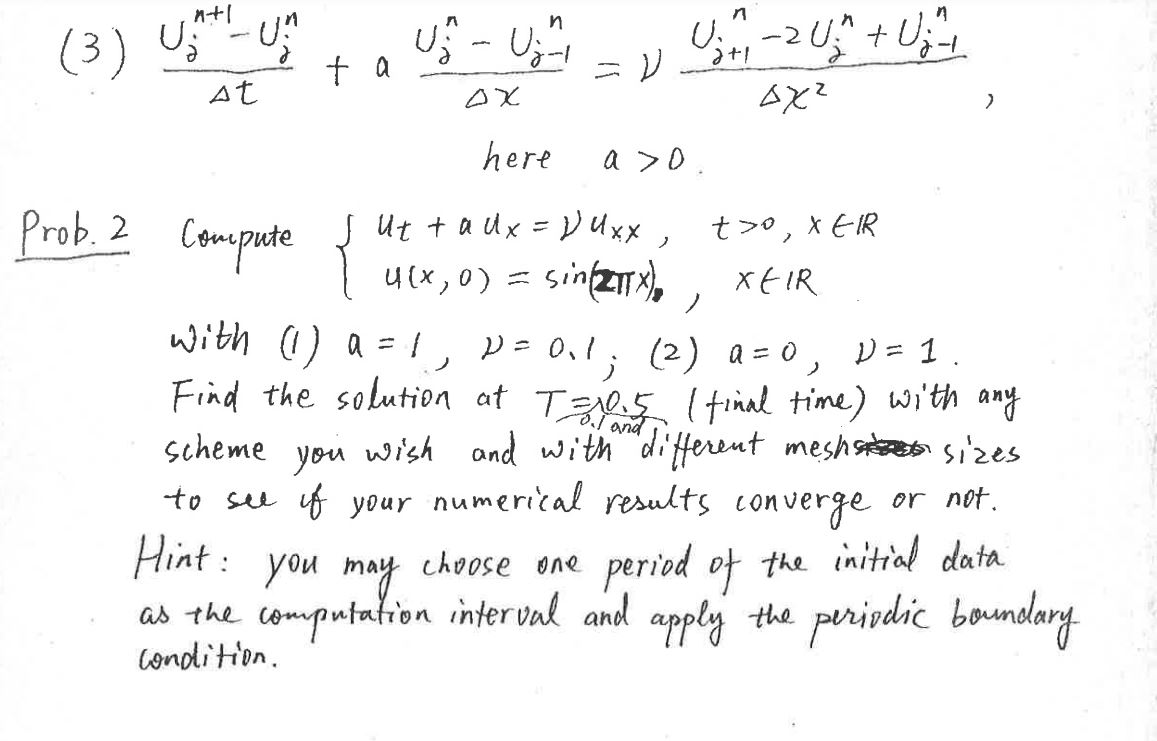 (3) \frac{U_j^{n+1} - U_j^n}{\Delta t} + a \frac{U_j^n - U_{j-1}^n}{\Delta x} = \nu \frac{U_{j+1}^n - 2U_j^n + U_{j-1}^n}{\Delta x^2},
here a > 0.
Prob. 2 Compute { u_t + a u_x = ν u_xx, t>0, x ∈ IR
u(x,0) = sin(2πx), , x ∈ IR
with (1) a = 1, ν = 0.1; (2) a = 0, ν = 1.
Find the solution at T = 0.1 and 0.5 (final time) with any
scheme you wish and with different mesh sizes
to see if your numerical results converge or not.
Hint: you may choose one period of the initial data
as the computation interval and apply the periodic boundary
condition.